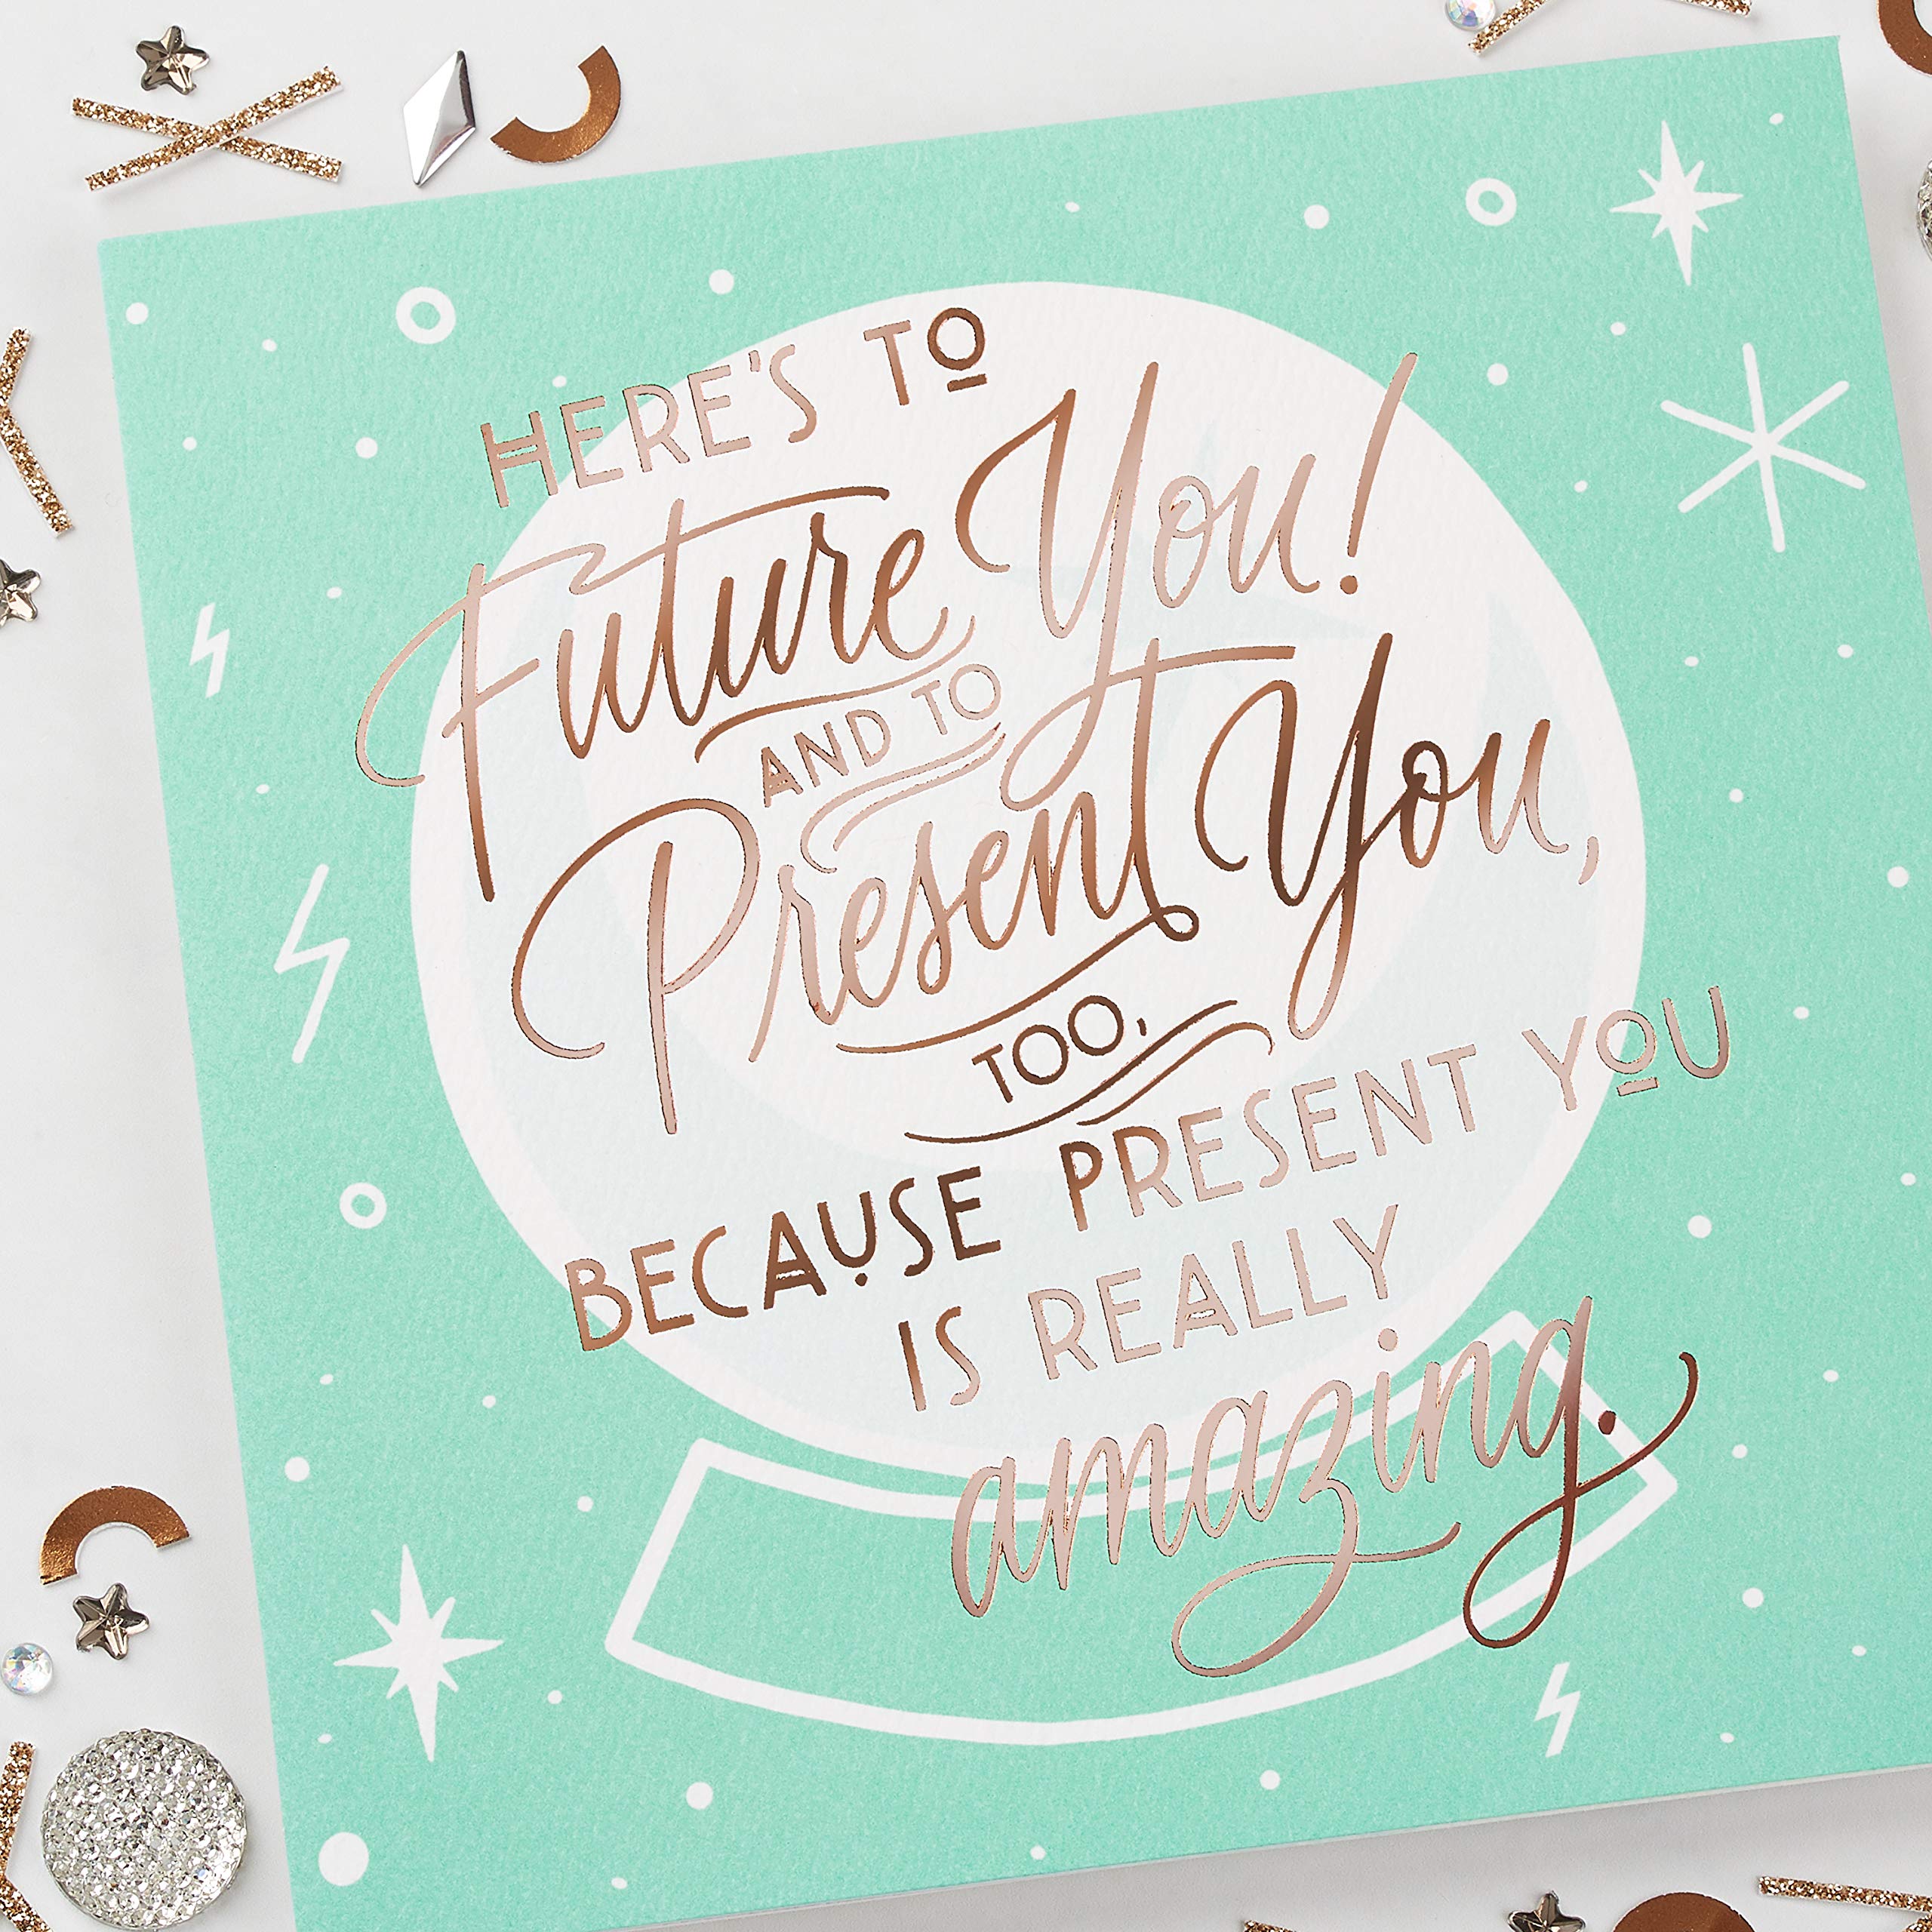 HERE'S TO
Future You!
AND TO
Present You,
TOO,
BECAUSE PRESENT YOU
IS REALLY
amazing.